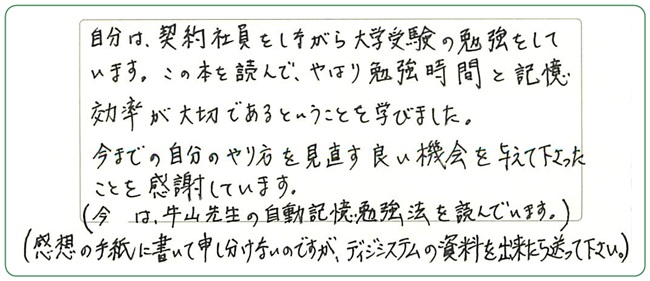 自分は、契約社員をしながら大学受験の勉強をして
います。この本を読んで、やはり勉強時間と記憶
効率が大切であるということを学びました。
今までの自分のやり方を見直す良い機会を与えて下さった
ことを感謝しています。
(今は、牛山先生の自動記憶勉強法を読んでいます。)
(感想の手紙に書いて申し分けないのですが、ディジシステムの資料を出来たら送って下さい。)